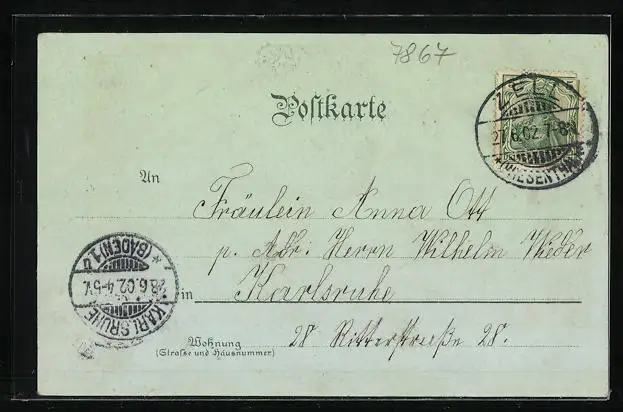 7867
Postkarte
ZELL
27.6.02.7-8
* (WIESENTHAL) *
An
Fräulein Anna Ott
p. Adr. Herrn Wilhelm Wieder
in Karlsruhe
28 Ritterstraße 28.
Wohnung
(Strasse und Hausnummer)
* (BADEN) 1.d
28.6.02.4-5V.
* KARLSRUHE